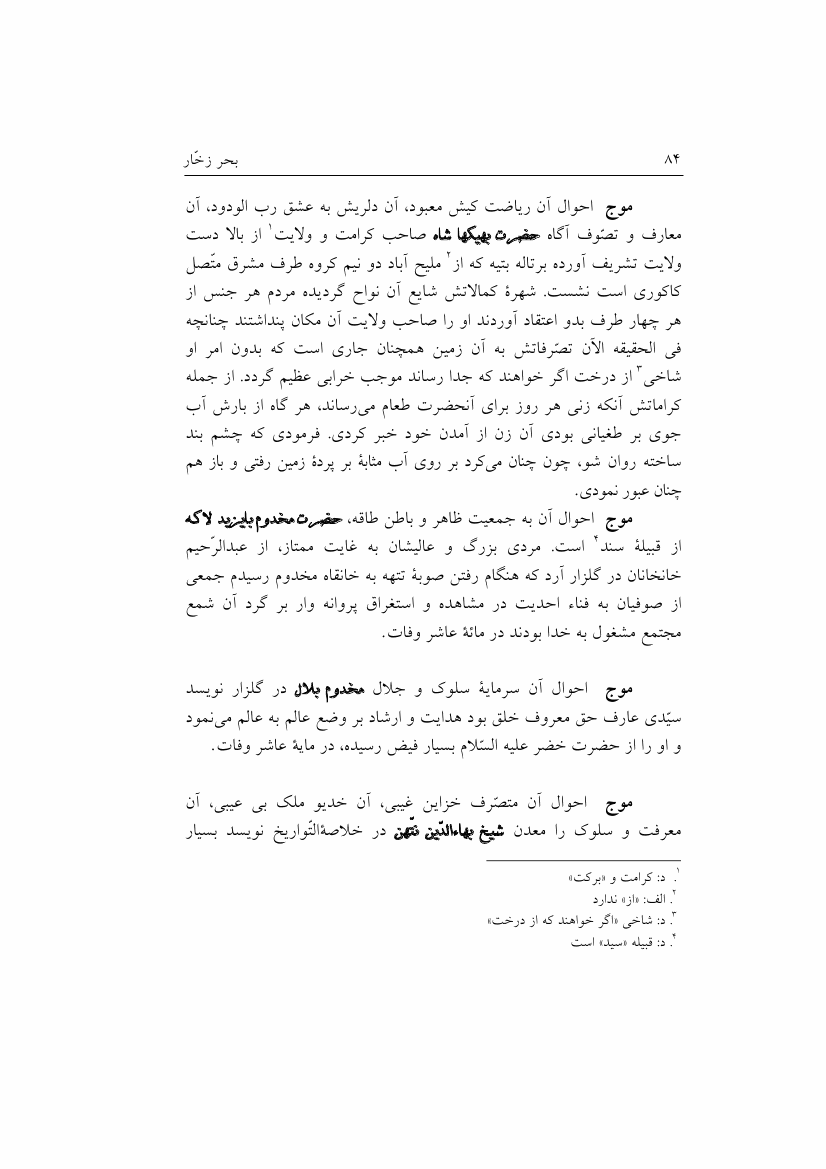 ۸۴ بحر زخّار
موج احوال آن ریاضت کیش معبود، آن دلریش به عشق رب الودود، آن
معارف و تصّوف آگاه حضرت بهیکها شاه صاحب کرامت و ولایت۱ از بالا دست
ولایت تشریف آورده برتاله بتیه که از۲ ملیح آباد دو نیم کروه طرف مشرق متّصل
کاکوری است نشست. شهرۀ کمالاتش شایع آن نواح گردیده مردم هر جنس از
هر چهار طرف بدو اعتقاد آوردند او را صاحب ولایت آن مکان پنداشتند چنانچه
فی الحقیقه الآن تصّرفاتش به آن زمین همچنان جاری است که بدون امر او
شاخی۳ از درخت اگر خواهند که جدا رساند موجب خرابی عظیم گردد. از جمله
کراماتش آنکه زنی هر روز برای آنحضرت طعام می‌رساند، هر گاه از بارش آب
جوی بر طغیانی بودی آن زن از آمدن خود خبر کردی. فرمودی که چشم بند
ساخته روان شو، چون چنان می‌کرد بر روی آب مثابۀ بر پردۀ زمین رفتی و باز هم
چنان عبور نمودی.
موج احوال آن به جمعیت ظاهر و باطن طاقه، حضرت مخدوم بایزید لاکه
از قبیلۀ سند۴ است. مردی بزرگ و عالیشان به غایت ممتاز، از عبدالرّحیم
خانخانان در گلزار آرد که هنگام رفتن صوبۀ تتهه به خانقاه مخدوم رسیدم جمعی
از صوفیان به فناء احدیت در مشاهده و استغراق پروانه وار بر گرد آن شمع
مجتمع مشغول به خدا بودند در مائۀ عاشر وفات.
موج احوال آن سرمایۀ سلوک و جلال مخدوم بلال در گلزار نویسد
سیّدی عارف حق معروف خلق بود هدایت و ارشاد بر وضع عالم به عالم می‌نمود
و او را از حضرت خضر علیه السّلام بسیار فیض رسیده، در مایۀ عاشر وفات.
موج احوال آن متصّرف خزاین غیبی، آن خدیو ملک بی عیبی، آن
معرفت و سلوک را معدن شیخ بهاءالدّین نتّهن در خلاصۀالتّواریخ نویسد بسیار
۱. د: کرامت و «برکت»
۲. الف: «از» ندارد
۳. د: شاخی «اگر خواهند که از درخت»
۴. د: قبیله «سید» است